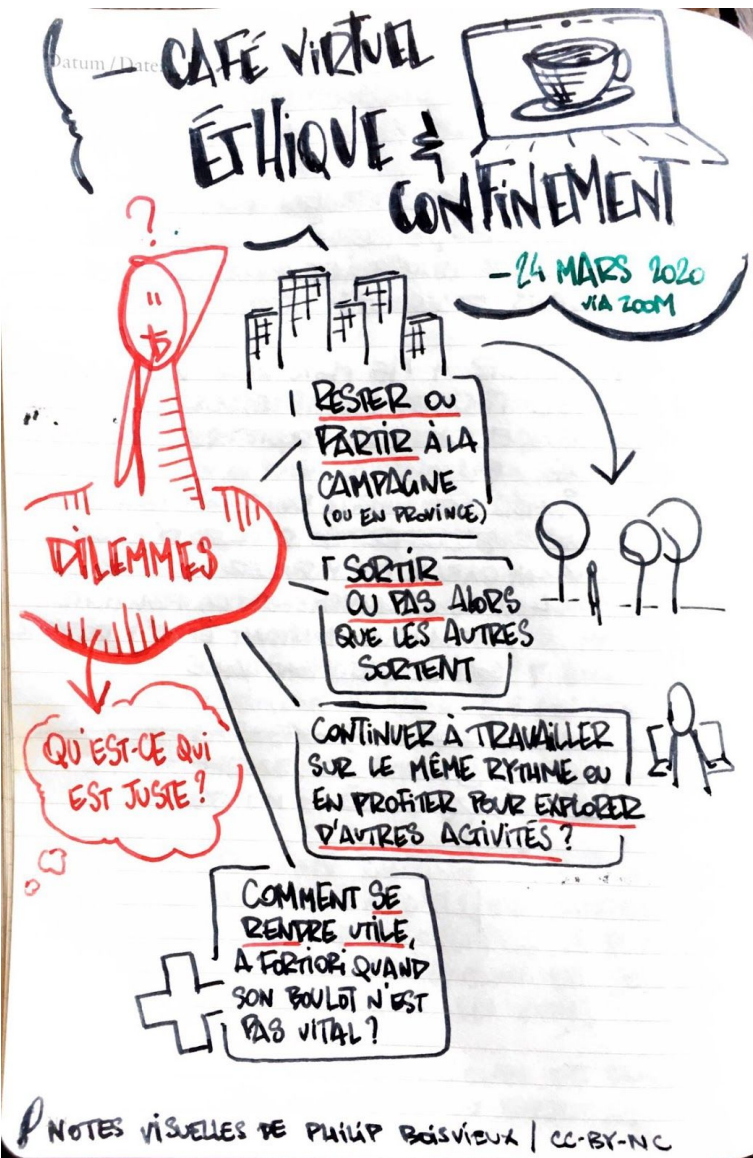 Datum / Date
- CAFÉ VIRTUEL
ÉTHIQUE &
CONFINEMENT
- 24 MARS 2020
VIA ZOOM
?
RESTER OU
PARTIR À LA
CAMPAGNE
(OU EN PROVINCE)
DILEMMES
SORTIR
OU PAS ALORS
QUE LES AUTRES
SORTENT
QU'EST-CE QUI
EST JUSTE ?
CONTINUER À TRAVAILLER
SUR LE MÊME RYTHME OU
EN PROFITER POUR EXPLORER
D'AUTRES ACTIVITÉS ?
COMMENT SE
RENDRE UTILE,
A FORTIORI QUAND
SON BOULOT N'EST
PAS VITAL ?
NOTES VISUELLES DE PHILIP BOISVIEUX | CC-BY-NC